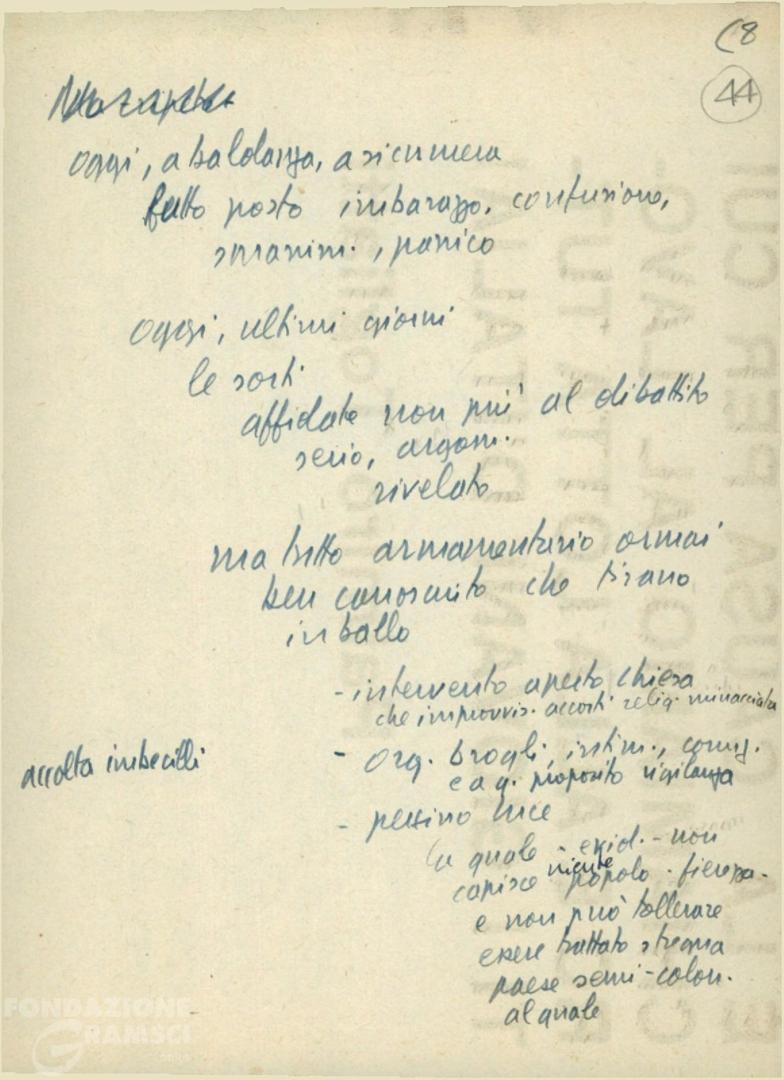 (8
44
oggi, a baldanza, a sicumera
fatto posto imbarazzo, confusione,
smanim., panico
oggi, ultimi giorni
le sorti
affidate non più al dibattito
serio, argom.
rivelato
ma tutto armamentario ormai
ben conosciuto che tirano
in ballo
- intervento aperto chiesa
che improvvis. accorti relig. minacciata
- org. brogli, intim., corruz.
e a q. proposito vigilanza
accolta imbecilli
- persino Luce
la quale - evid. - non
capisce niente popolo - fierezza -
e non può tollerare
essere trattato stregua
paese semi-colon.
al quale
FONDAZIONE
GRAMSCI